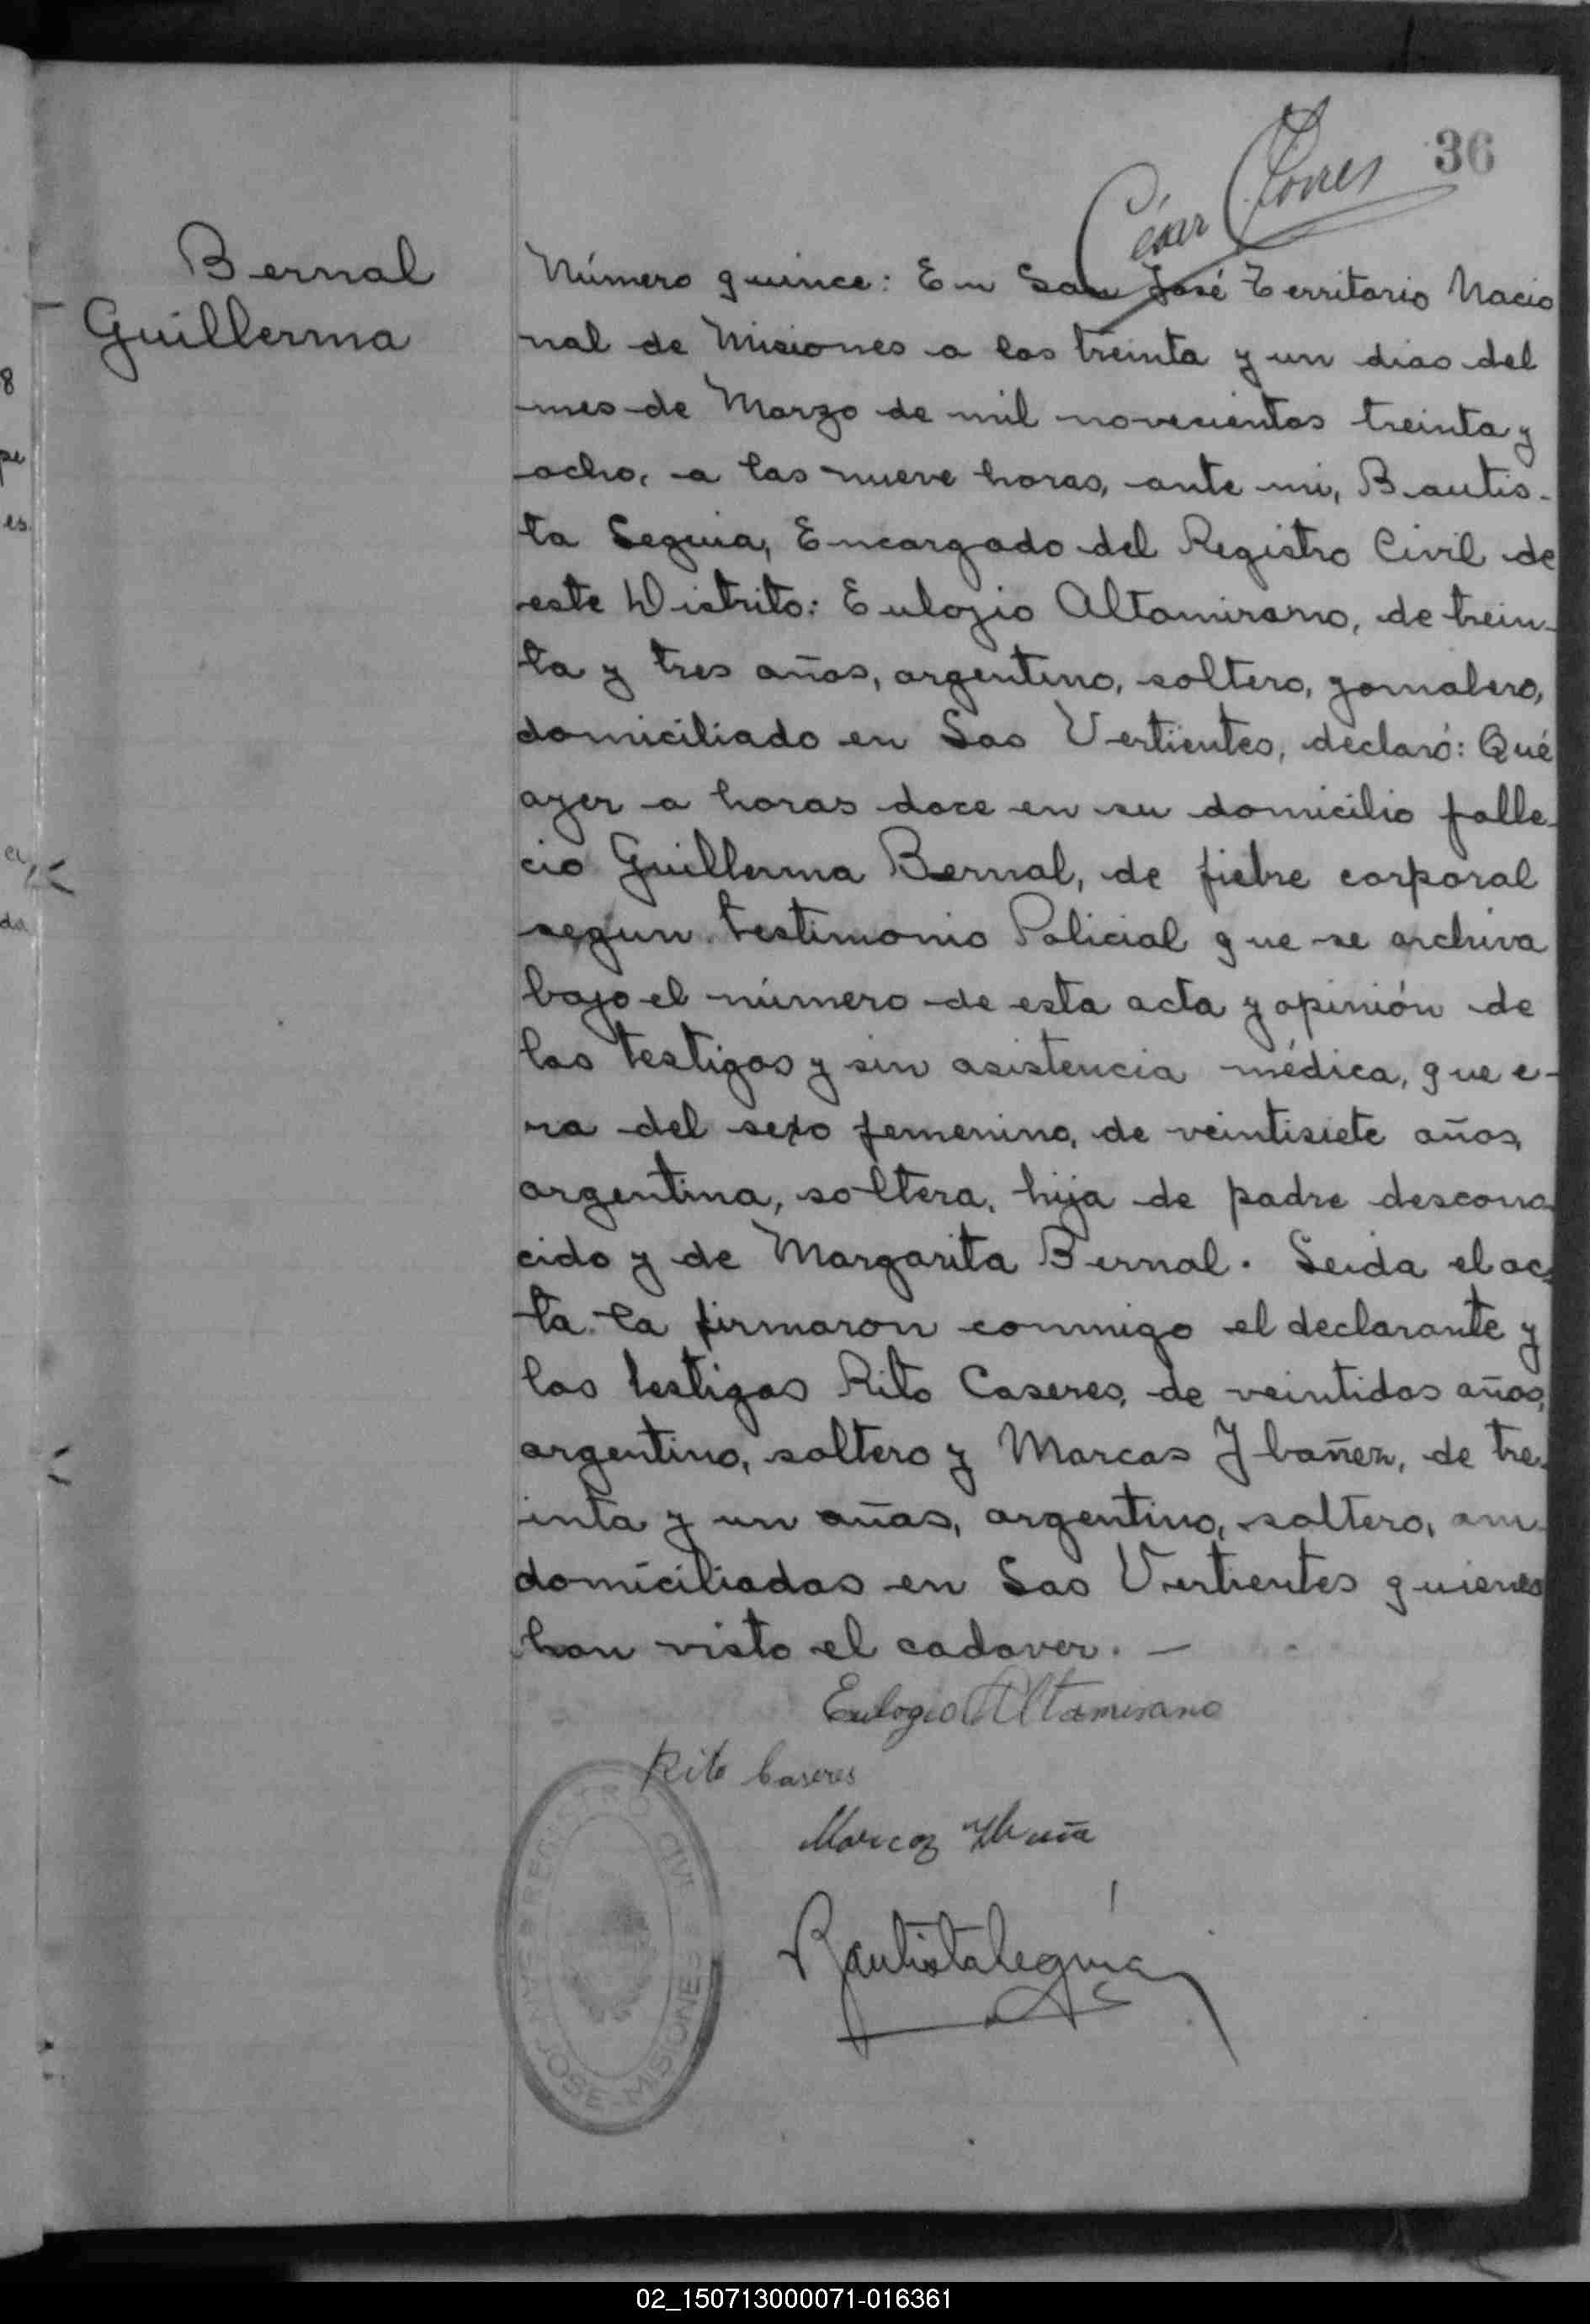 36
César Torres
Bernal
Guillerma
Número quince: En San José Territorio Nacio
nal de Misiones a los treinta y un dias del
mes de Marzo de mil novecientos treinta y
ocho, a las nueve horas, ante mi, Bautis-
ta Leguia, Encargado del Registro Civil de
este Distrito: Eulogio Altamirano, de trein-
ta y tres años, argentino, soltero, jornalero,
domiciliado en Las Vertientes, declaró: Qué
ayer a horas doce en su domicilio falle-
cio Guillerma Bernal, de fiebre corporal
segun testimonio Policial que se archiva
bajo el número de esta acta y opinión de
los testigos y sin asistencia médica, que e-
ra del sexo femenino, de veintisiete años,
argentina, soltera, hija de padre descono
cido y de Margarita Bernal. Leida el ac-
ta la firmaron conmigo el declarante y
los testigos Rito Caseres, de veintidos años,
argentino, soltero y Marcos Ybañez, de tre-
inta y un años, argentino, soltero, am
domiciliados en Las Vertientes quienes
han visto el cadaver. —
Eulogio Altamirano
Rito Caseres
Marcoz
Bautista Leguia
REGISTRO CIVIL
SAN JOSE - MISIONES
8
pe
es.
da
02_150713000071-016361